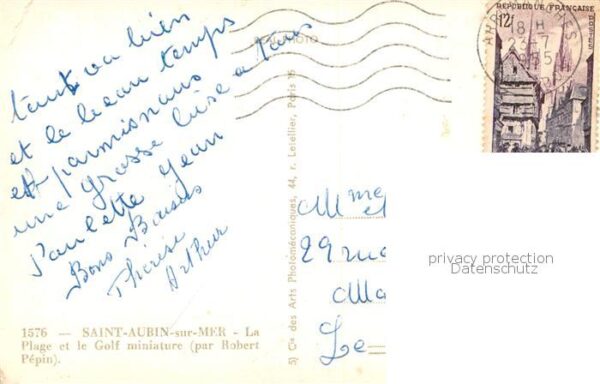 tout va bien
et le beau temps
est parmis nous
une grosse bise a tous
Jean
Bons Baisers
Thérèse
Arthur
1576 — SAINT-AUBIN-sur-MER - La
Plage et le Golf miniature (par Robert
Pépin).
5) Cie des Arts Photomécaniques, 44, r. Letellier, Paris 15
REAL PHOTO
RÉPUBLIQUE FRANÇAISE
12f
POSTES
18 H
Mme
29 rue
Ma
Le
privacy protection
Datenschutz